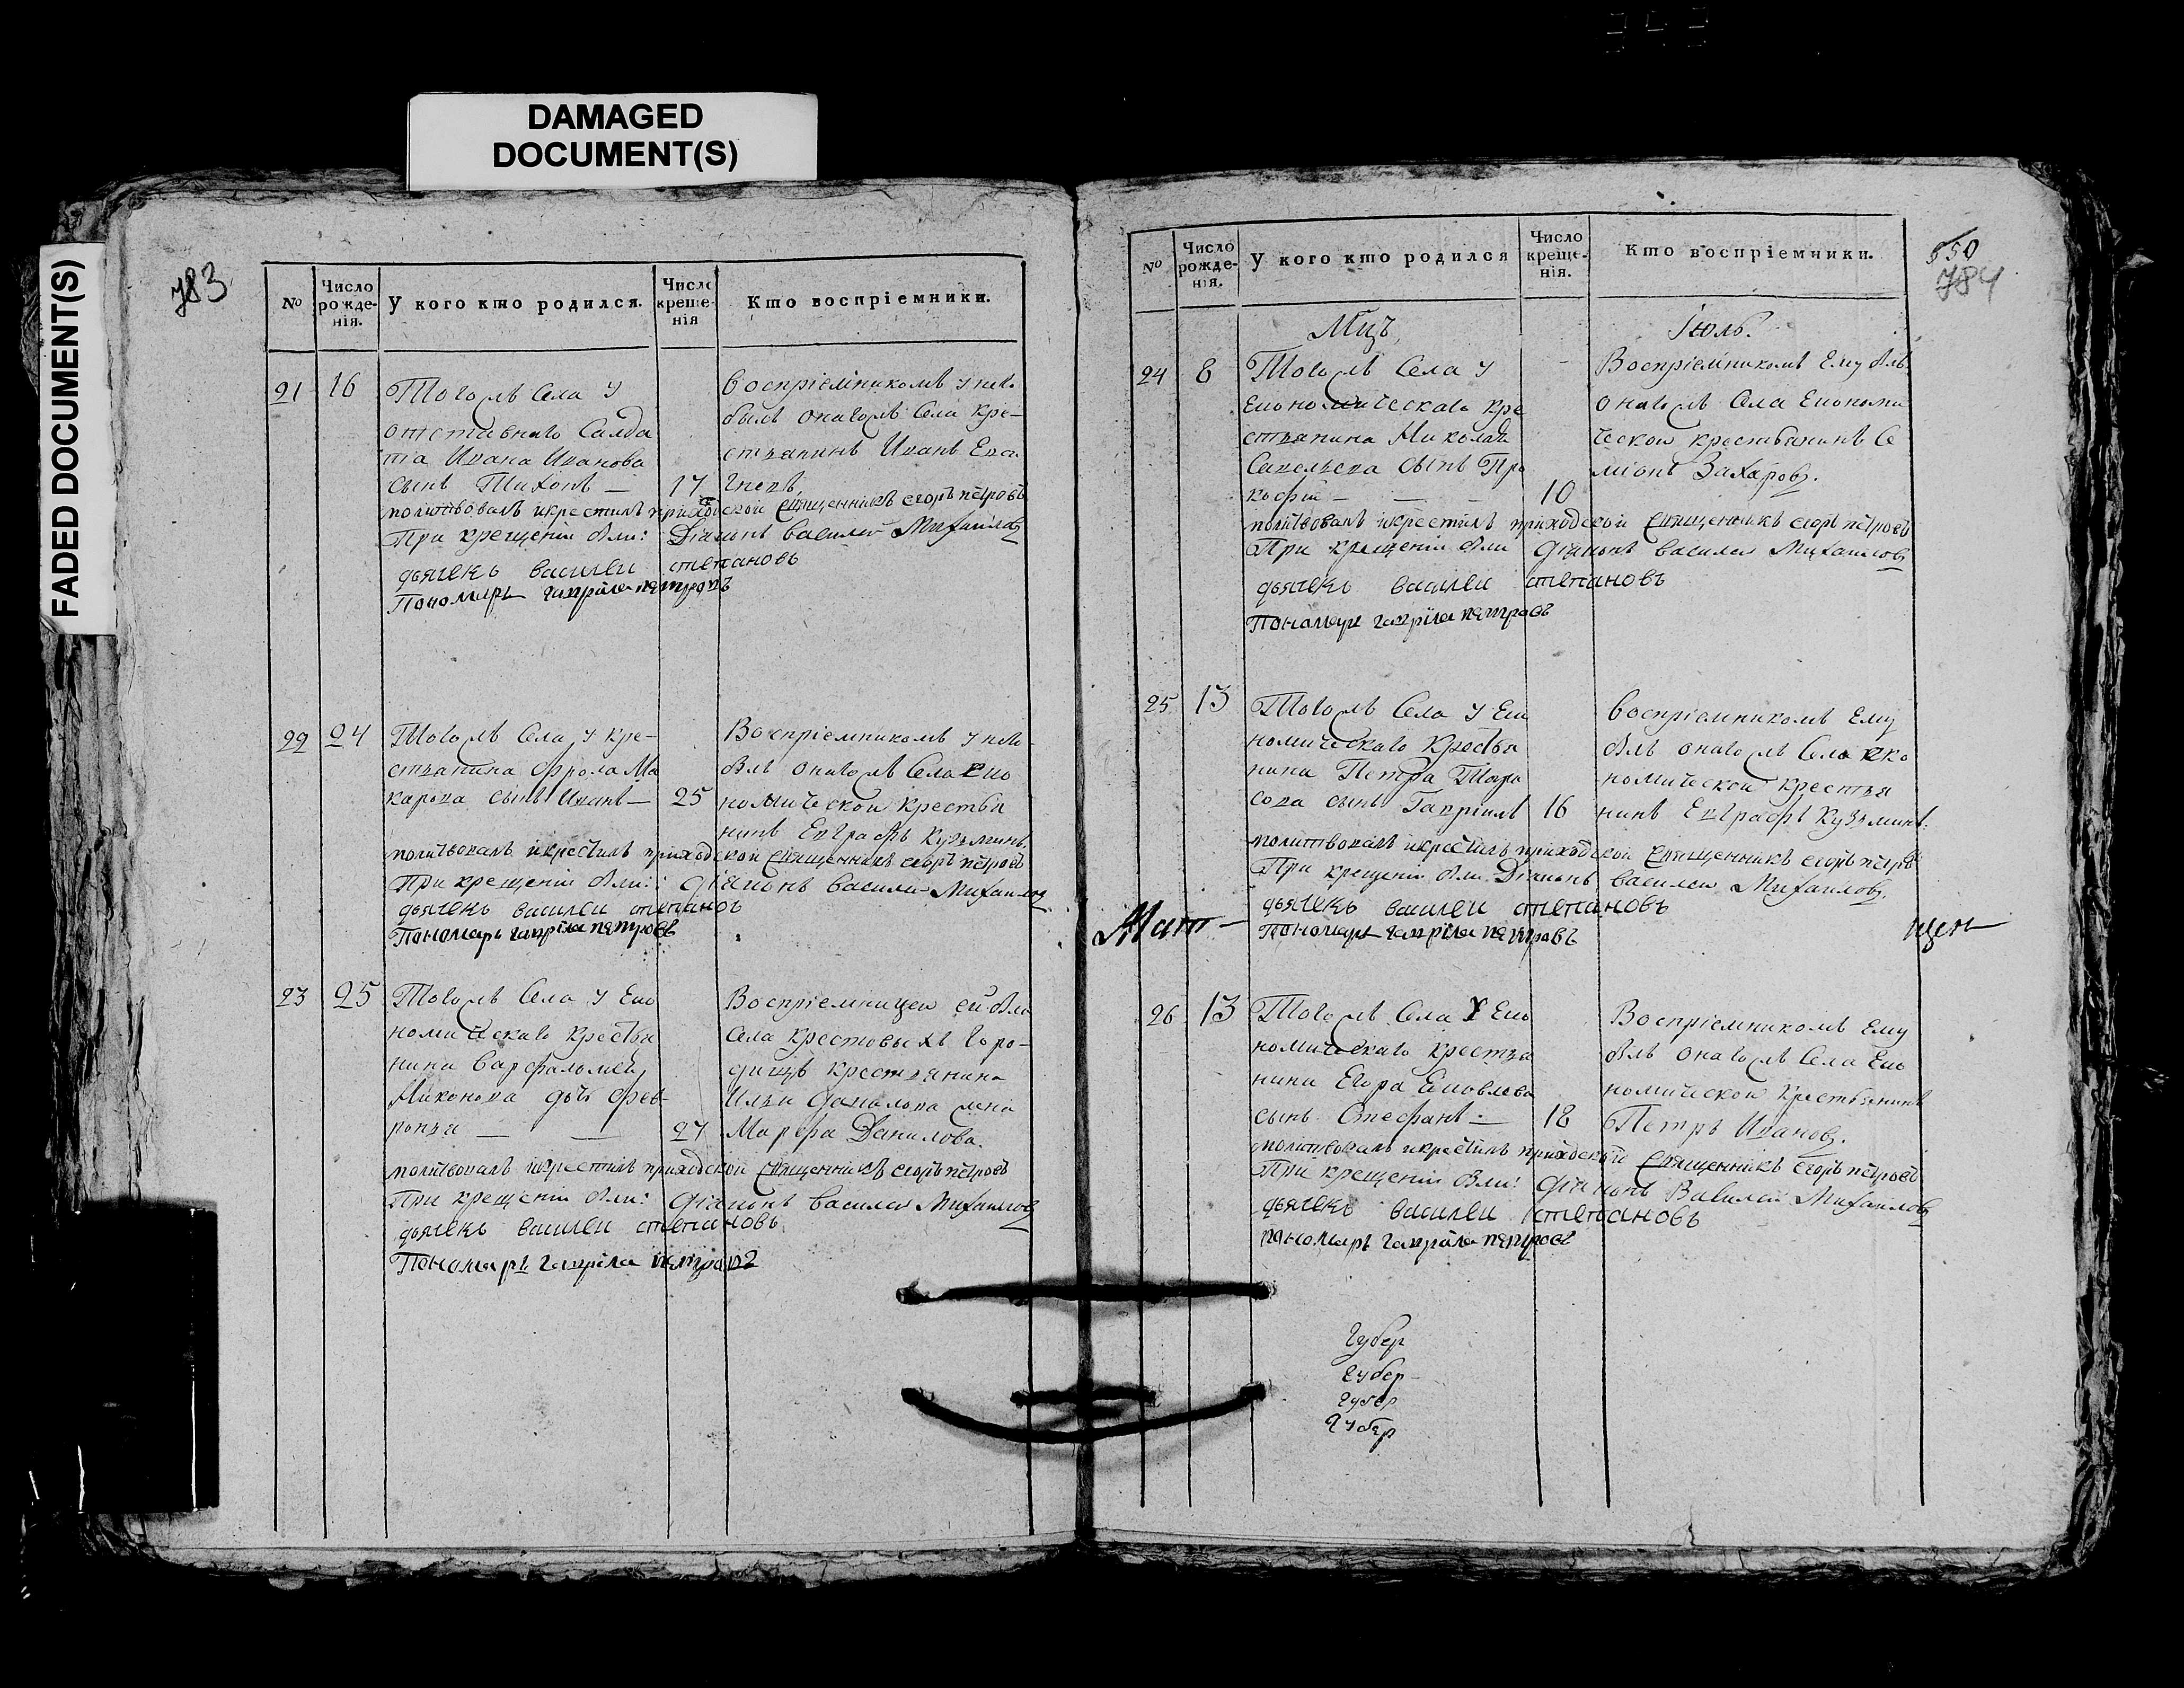 DAMAGED
DOCUMENT(S)
FADED DOCUMENT(S)
783
№
Число рожде-нія.
У кого кто родился.
Число креще-нія
Кто воспріемники.
21 16
Тогожъ Села у
отставнаго Салда
та Ивана Иванова
сынъ Тихонъ — 17
воспріемникомъ у него
былъ онагожъ Села кре-
стьянинъ Иванъ
молитвовалъ и крестилъ приходской священникъ егоръ петровъ
При крещеніи были: Діаконъ василий Михаиловъ
дьячекъ василеи степановъ
Пономарь гаврила петровъ
22 24
Тогожъ Села у кре-
стьянина Фрола Ма
карова сынъ Иванъ — 25
Воспріемникомъ у него
былъ онагожъ Села еко
номической крестья
нинъ Евграфъ Кузьминъ.
молитвовалъ и крестилъ приходской священникъ егоръ петровъ
При крещеніи были: діаконъ василий Михаиловъ
дьячекъ василеи степановъ
Пономарь гаврила петровъ
23 25
Тогожъ Села у Еко
номическаго крестья
нина Варфаломея
Никонова дочь Фев-
ронья — — 27
Воспріемницею ей была
Села крестовыхъ Горо-
дищъ крестьянина
Ильи Данилова жена
Марфа Данилова.
молитвовалъ и крестилъ приходской священникъ егоръ петровъ
При крещеніи были: діаконъ василей Михаиловъ
дьячекъ василеи степановъ
Пономарь гаврила петровъ
550
784
№
Число рожде-нія.
У кого кто родился
Число креще-нія.
Кто воспріемники.
Мцъ Іюль.
24 8
Тогожъ Села у
Економическаго кре
стьянина Николая
Савельева сынъ Про
кофій — — — 10
Воспріемникомъ Ему былъ
онагожъ Села Економи
ческой крестьянинъ Се
міонъ Захаровъ.
молитвовалъ и крестилъ приходской священникъ егоръ петровъ
При крещеніи были діаконъ василей Михаиловъ
дьячекъ василеи степановъ
Пономарь гаврила петровъ
25 13
Тогожъ Села у Еко
номическаго крестья
нина Петра Тара
сова сынъ Гавріилъ 16
воспріемникомъ Ему
былъ онагожъ Села еко
номической крестья
нинъ Евграфъ Кузьминъ.
молитвовалъ и крестилъ приходской священникъ егоръ петровъ
При крещеніи были Діаконъ василеи Михаиловъ.
дьячекъ василеи степановъ
Пономарь гаврила петровъ
26 13
Тогожъ Села У Еко
номическаго крестья
нина Егора Яковлева
сынъ Стефанъ — 18
Воспріемникомъ Ему
былъ онагожъ Села Еко
номической крестьянинъ
Петръ Ивановъ.
молитвовалъ и крестилъ приходской священникъ егоръ петровъ
При крещеніи были: діаконъ Василей Михаиловъ
дьячекъ василеи степановъ
пономарь гаврила петровъ
губер
губер
губер
губер